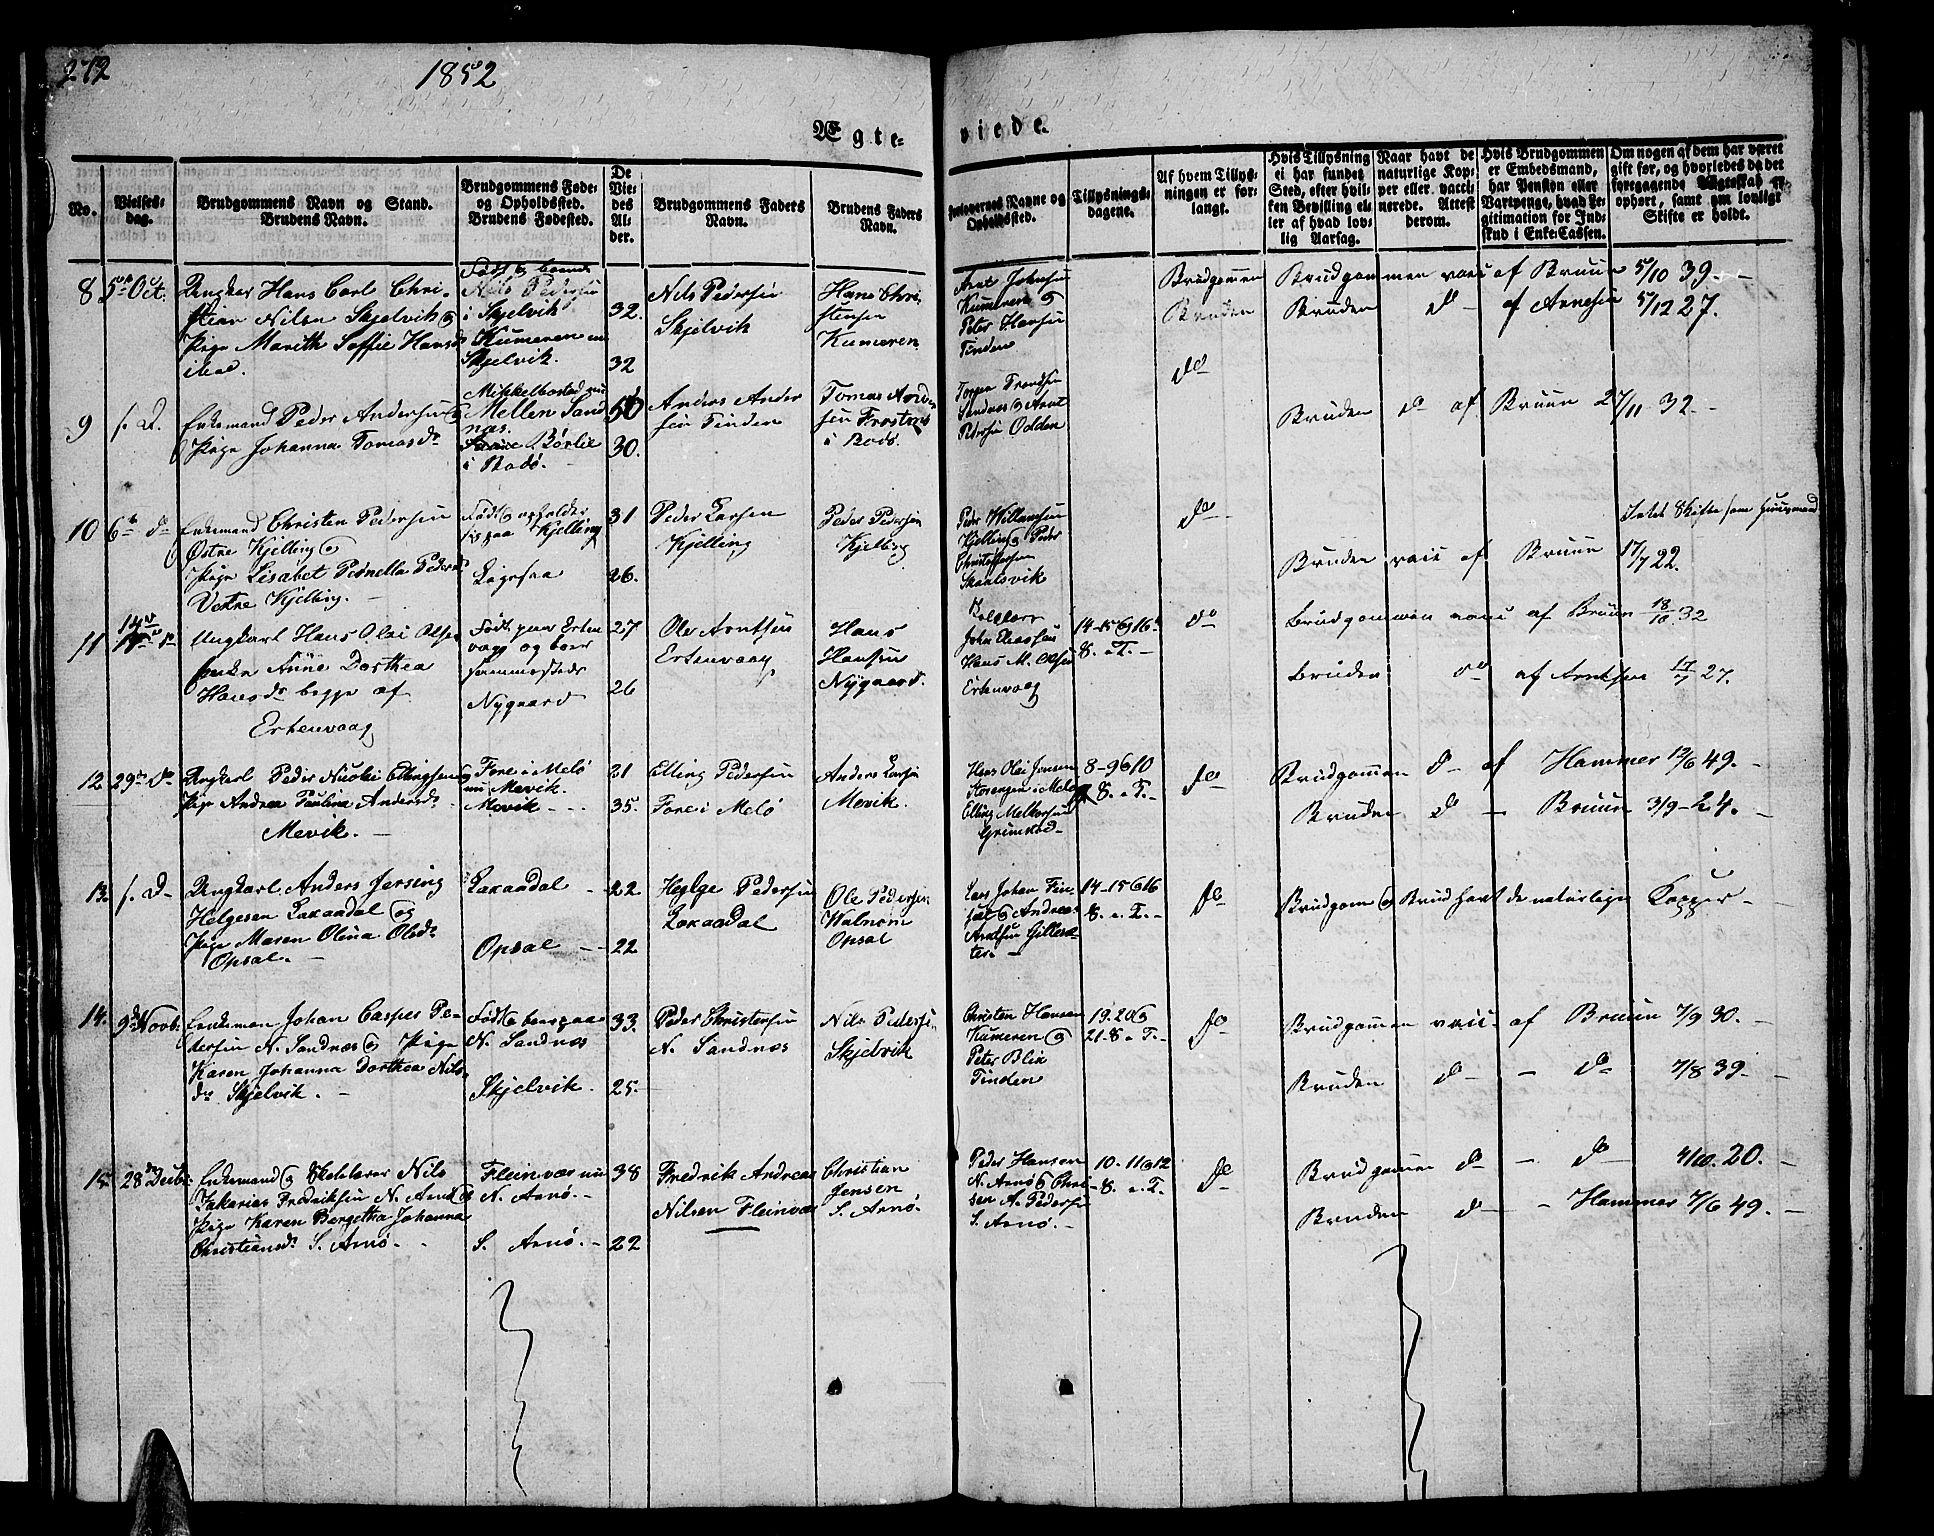 272
1852
Ægte-
viede.
No.
Vielses-
dag.
Brudgommens Navn og Stand.
Brudens Navn.
Brudgommens Føde-
og Opholdssted.
Brudens Fødested.
De
Vie-
des
Al-
der.
Brudgommens Faders
Navn.
Brudens Faders
Navn.
Forlovernes Navne og
Opholdssted.
Tillysnings-
dagene.
Af hvem Tillys-
ningen er for-
langt.
Hvis Tillysning
ei har fundet
Sted, efter hvil-
ken Bevilling el-
ler af hvad lov-
lig Aarsag.
Naar havt de
naturlige Kop-
per eller vacci-
nerede. Attest
derom.
Hvis Brudgommen
er Embedsmand,
har Pension eller
Vartpenge, hvad Le-
gitimation for Ind-
skud i Enke-Cassen.
Om nogen af dem har været
gift før, og hvorledes da det
foregaaende Ægteskab er
ophørt, samt om lovligt
Skifte er holdt.
8
5te Oct.
Ungkar Hans Carl Chri-
stian Nilsen Skjelvik og
Pige Marith Soffie Hans
Født og boende
Nils Pedersen
i Skjelvik
Kumeren nu
Skjelvik.
32.
32
Nils Pedersen
Skjelvik
Hans Chri-
stensen
Kumeren
Arnt Johnsen
Kumeren og
Peter Hansen
Tinden
Brudgommen
Bruden
do
Brudgommen vacc af Bruun 5/10 39. -
Bruden do - af Arnesen 5/12 27.
9
s. D.
Enkemand Peder Andersen og
Pige Johanna Tomasdr
Mikkelbostad nu
Mellen Sand
næs.
Børlie
i Bodø. -
50
30.
Anders Ander
sen Tinden
Tomas
sen
i Bodø.
Sandnes og Arnt
Pedersen Odden
Bruden do af Bruun 2/11 32. -
10
6te do
Enkemand Christen Pedersen
Østre Kjelling og
Pige Lisabet Pernella Peders
Vestre Kjelling. -
Født og opholder
sig paa Kjelling
Ligesaa
31
26.
Peder Larsen
Kjelling
Peder Pedersen
Kjelling
Peder Willumsen
Kjelling og Peder
Christoffersen
Skaalsvik
do
Intet Skifte som Huusmand
Bruden vacc af Bruun 17/7 22.
11
14de
Ungkarl Hans Olai Olsen
Enke Anne Dorthea
Hansdr begge af
Ertenvaag
Født paa Erten
vaag og boer
sammesteds
Nygaard
27
26
Ole Arntsen
Ertenvaag
Hans
Hansen
Nygaard.
John Eliassen
Hans M. Olsen
Ertenvaag
14-15 og 16de
8. e. T. -
do
Brudgommen vacc af Bruun 18/10 32
Bruden do af Arntsen 17/7 27.
12
29de do
Ungkarl Peder Nicolai Ellingsen og
Pige Andrea Paulina Andersdr
Mevik. -
Fore i Melø
nu Mevik.
Mevik - -
21
35.
Elling Pedersen
Fore i Melø
Anders Larsen
Mevik.
Hans Olai Jensen
Storengen i Melø
Elling Melkersen
Grimstad -
8-9 og 10
8. e. T. -
do
Brudgommen do - af Hammer 12/6 49. -
Bruden do - Bruun 3/9 - 24. -
13.
s. D -
Ungkarl Anders Jersing
Helgesen Laxaadal og
Pige Maren Olina Olsdr
Opsal. -
Laxaadal - -
Opsal - -
22
22
Helge Pedersen
Laxaadal
Ole Pedersen
Walnum
Opsal
Lars Johan Fin-
og Andreas
Arntsen Gillesæ-
ter. -
14-15 og 16
8. e. T. -
do
Brudgom og Brud havt de naturlige Kopper -
14.
9de Novb:
Enkeman Johan Casper Pe-
dersen N. Sandnæs og Pige
Karen Johanna Dorthea Nils-
dr Skjelvik. -
Født og boer paa
N. Sandnæs
Skjelvik.
33.
25.
Peder Christensen
N. Sandnæs
Nils Pedersen
Skjelvik
Christen Hansen
Kumeren og
Peter Blix
Tinden
19. 20 og
21. 8. e. T. -
do
Brudgommen vacc. af Bruun 7/9 30. -
Bruden do - - do 7/8 39. -
15.
28de Decbr.
Enkemand og Skolelærer Nils
Zakarias Fredriksen N. Arnø og
Pige Karen Bergetha Johanna
Christiansdr S. Arnø. -
Fleinvær nu
N. Arnø. -
S. Arnø. -
38
22
Fredrik Andreas
Nilsen Fleinvær
Christian
Jensen
S. Arnø.
Peder Hansen
N. Arnø og Chri-
sen A. Pedersen
S. Arnø. -
10. 11 og 12
8. e. T. -
do
Brudgommen do - - do 4/10. 20. -
Bruden do - - Hammer 7/6 49. -